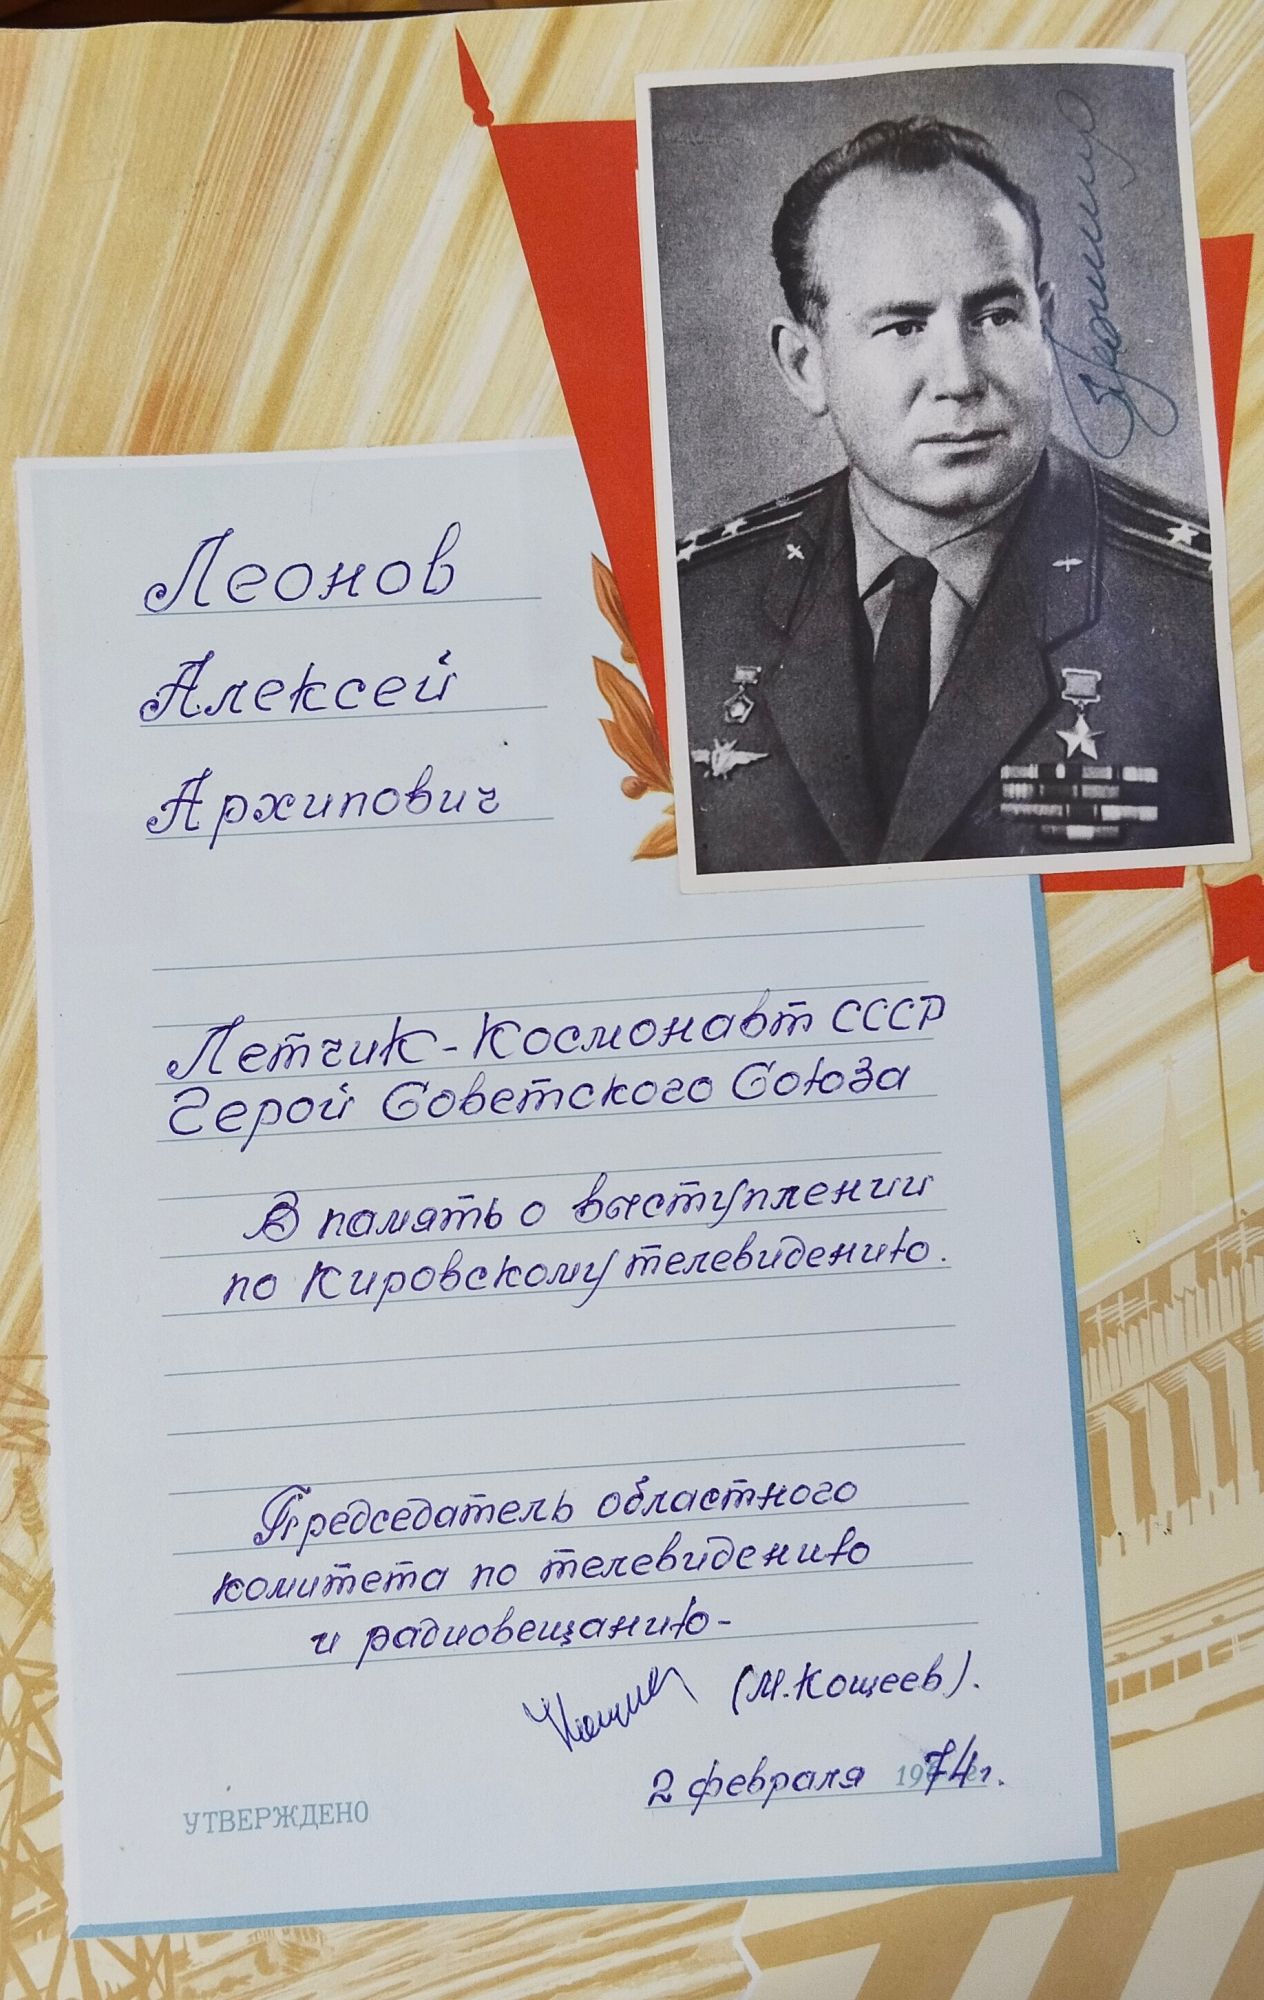 Леонов
Алексей
Архипович
Летчик-Космонавт СССР
Герой Советского Союза
В память о выступлении
по Кировскому телевидению.
Председатель областного
комитета по телевидению
и радиовещанию-
(М. Кощеев).
2 февраля 1974г.
УТВЕРЖДЕНО